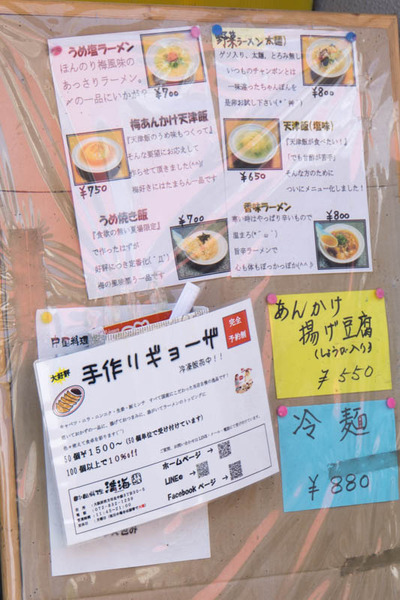 うめ塩ラーメン
ほんのり梅風味の
あっさりラーメン。
の一品にいかが？
¥700
梅あんかけ天津飯
『天津飯のうめ味もつくって』
そんな要望にお応えして
作らせて頂きました(^^)!
梅好きにはたまらん一品です
¥750
うめ焼き飯
¥700
『食欲の無い夏場限定』
で作ったはずが
好評につき定番化(ﾟДﾟ)
梅の風味香る一品です
野菜ラーメン(太麺)
ゲソ入り、太麺、とろみ無し
いつものチャンポンとは
一味違ったちゃんぽんを
是非お試し下さい
¥800
天津飯(塩味)
『天津飯が食べたい！』
『でも甘酢が苦手』
そんな方のために
ついにメニュー化しました！
¥650
香味ラーメン
¥800
寒い時はやっぱり辛いもので
温まろ(*´ω｀)
旨辛ラーメンで
心も体もぽっかぽっか(^^)
料理
大好評
手作りギョーザ
完全
予約制
冷凍販売中！！
キャベツ・ニラ・ニンニク・生姜・豚ミンチ
50個¥1500～ (50個単位で受け付けています)
100個以上で10%off
ホームページ→
LINE@→
Facebookページ→
あんかけ
揚げ豆腐
(しょうが入り)
¥550
冷麺
¥880